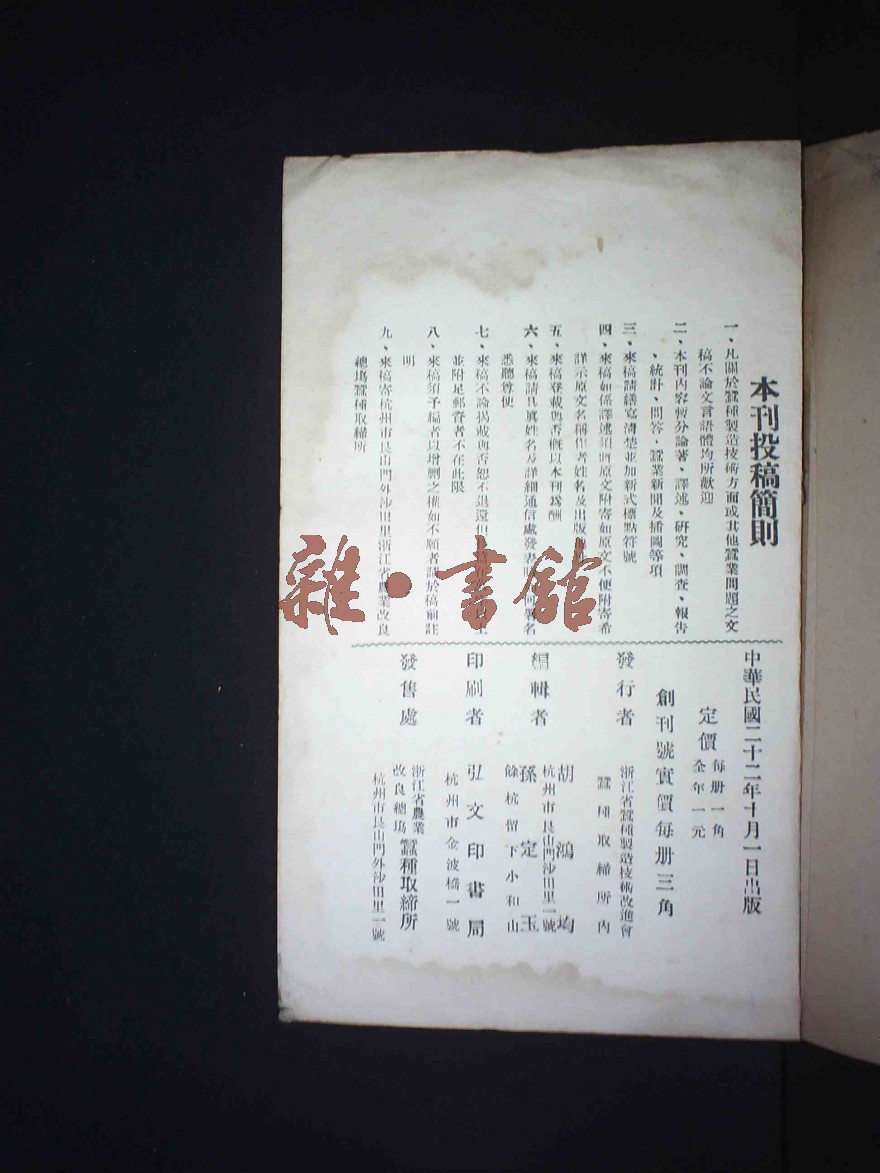 本刊投稿簡則
一、凡關於蠶種製造技術方面或其他蠶業問題之文
稿不論文言語體均所歡迎
二、本刊內容暫分論著、譯述、研究、調查、報告
、統計、問答、蠶業新聞及插圖等項
三、來稿請繕寫清楚並加新式標點符號
四、來稿如係譯述須將原文附寄如原文不便附寄希
詳示原文名稱作者姓名及出版
五、來稿登載與否概以本刊為酬
六、來稿請具眞姓名及詳細通信處發表 何署名
悉聽尊便
七、來稿不論揭載與否恕不退還但 在 以上
並附足郵資者不在此限
八、來稿須予編者以增刪之權如不願者請於稿前註
明
九、來稿寄杭州市艮山門外沙田里浙江省農業改良
總場蠶種取締所
中華民國二十二年十月一日出版
定價 每册一角
全年一元
創刊號實價每册三角
發行者 浙江省蠶種製造技術改進會
蠶種取締所內
編輯者 胡鴻均
杭州市艮山門沙田里一號
孫定玉
餘杭留下小和山
印刷者 弘文印書局
杭州市金波橋一號
發售處 浙江省農業
改良總場 蠶種取締所
杭州市艮山門外沙田里一號
雜·書館